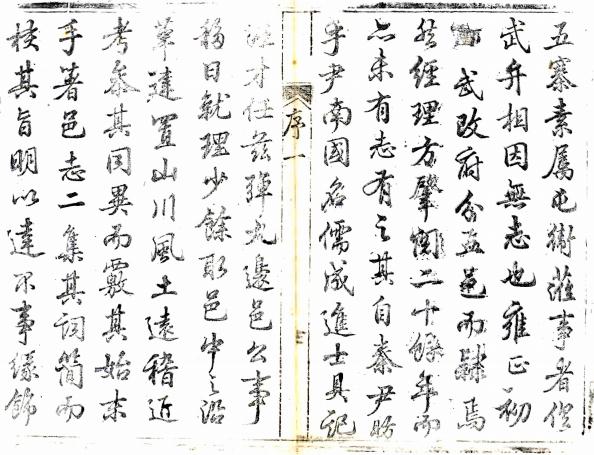 五寨素屬屯衛蒞事者俱
武弁相因無志也雍正初
武改府分五邑而隸焉
然經理方肇閱二十餘年而
亦未有志有之其自秦尹昉
乎尹南國名儒成進士具記
序一
才任茲彈丸邊邑公事
日就理少餘取邑中之沿
革建置山川風土遠稽近
考參其同異而覈其始末
手著邑志二集其詞簡而
核其旨明以達不事緣飾